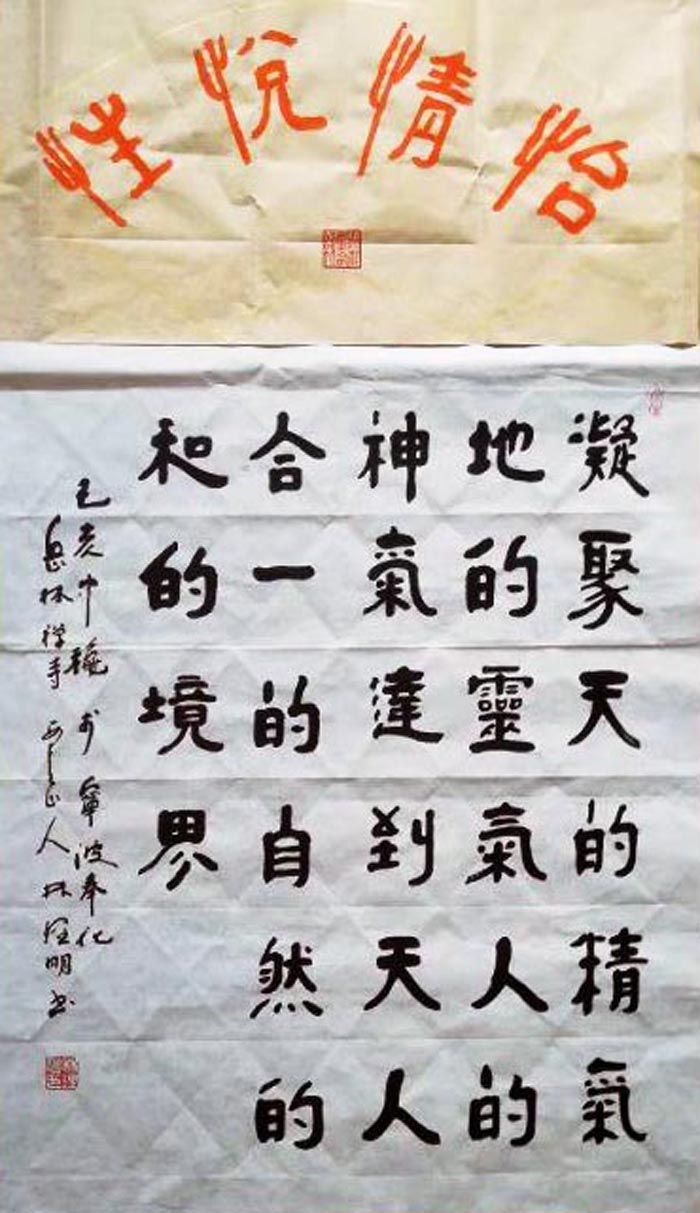 怡情悦性
凝聚天的精氣
地的靈氣人的
神氣達到天人
合一的自然的
和的境界
己亥中穐於寧波奉化
岳林禅寺 人林明书